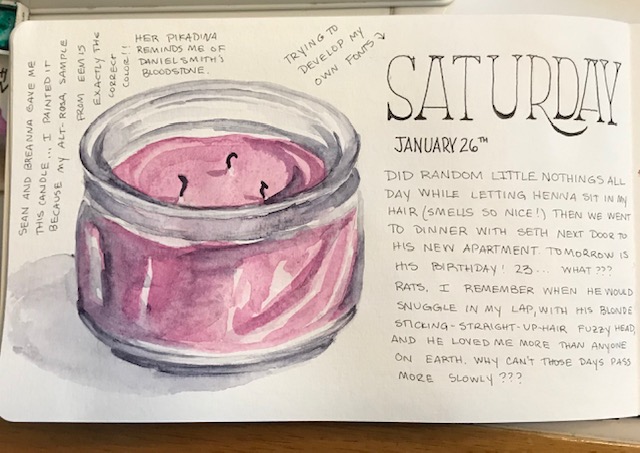 SEAN AND BREANNA GAVE ME
THIS CANDLE... I PAINTED IT
BECAUSE MY ALT-ROSA SAMPLE
FROM EEM IS
EXACTLY THE
CORRECT
COLOR!!
HER PIKADINA
REMINDS ME OF
DANIEL SMITH'S
BLOODSTONE.
TRYING TO
DEVELOP MY
OWN FONTS
SATURDAY
JANUARY 26TH
DID RANDOM LITTLE NOTHINGS ALL
DAY WHILE LETTING HENNA SIT IN MY
HAIR (SMELLS SO NICE!) THEN WE WENT
TO DINNER WITH SETH NEXT DOOR TO
HIS NEW APARTMENT. TOMORROW IS
HIS BIRTHDAY! 23... WHAT???
RATS. I REMEMBER WHEN HE WOULD
SNUGGLE IN MY LAP, WITH HIS BLONDE
STICKING-STRAIGHT-UP-HAIR FUZZY HEAD,
AND HE LOVED ME MORE THAN ANYONE
ON EARTH. WHY CAN'T THOSE DAYS PASS
MORE SLOWLY???